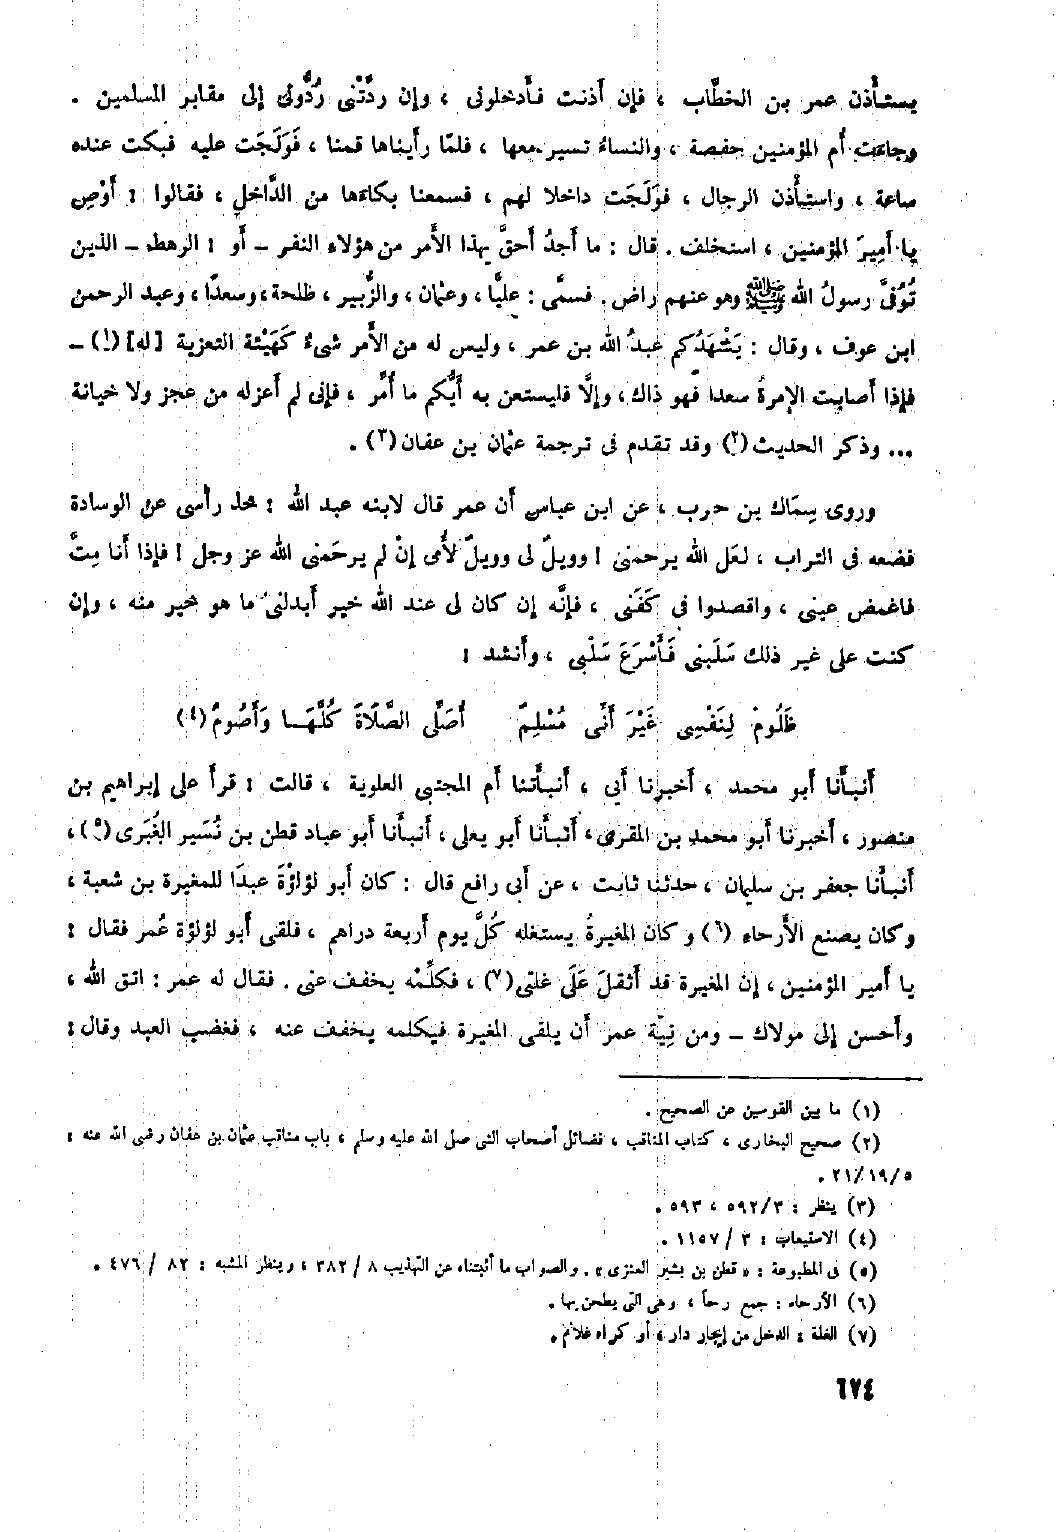 يستأذن عمر بن الخطّاب ، فإن أذنت فأدخلونى ، وإن ردَّتْنى رُدُّونى إلى مقابر المسلمين .
وجاءت أم المؤمنين حفصة ، والنساءُ تسير معها ، فلمّا رأيناها قمنا ، فَوَلَجَت عليه فبكت عنده
ساعة ، واستأذن الرجال ، فوَلَجَت داخلا لهم ، فسمعنا بكاءَها من الدَّاخلِ ، فقالوا : أَوْصِ
يا أَمِيرَ المؤمنين ، استخلف . قال : ما أَجدُ أَحقَّ بهذا الأَمر من هؤلاء النفر – أَو : الرهط – الذين
تُوُفَّى رسولُ الله ﷺ وهو عنهم راض . فسمَّى : عليًّا ، وعثمان ، والزُّبير ، طلحة ، وسعدًا ، وعبد الرحمن
ابن عوف ، وقال : يَشْهَدُكم عبدُ الله بن عمر ، وليس له من الأَمر شىءٌ كَهَيْئة التعزية [له](١) –
فإذا أَصابت الإمرةُ سعدا فهو ذاك ، وإلَّا فليستعن به أَيُّكم ما أُمِّر ، فإنى لم أَعزله من عجز ولا خيانة
... وذكر الحديث(٢) وقد تقدم فى ترجمة عثمان بن عفان(٣) .
وروى سِمَاك بن حرب ، عن ابن عباس أَن عمر قال لابنه عبد الله : خذ رأسى عن الوسادة
فضعه فى التراب ، لعَل الله يرحمنى ! وويلٌ لى وويلٌ لأُمى إنْ لم يرحَمنى الله عز وجل ! فإذا أَنا مِتَّ
فاغمض عينى ، واقصدوا فى كَفَنى ، فإنَّه إن كان لى عند الله خير أَبدلنى ما هو خير منه ، وإن
كنت على غير ذلك سَلَبنى فَأَسْرَعَ سَلْبى ، وأَنشد :
ظَلُومٌ لِنَفْسِى غَيْرَ أَنِّى مُسْلِمٌ أُصَلِّى الصَّلَاةَ كُلَّهَــا وَأَصُومُ(٤)
أَنبأَنا أَبو محمد ، أَخبرنا أَبى ، أَنبأَتنا أم المجتبى العلوية ، قالت : قرأَ على إبراهيم بن
منصور ، أَخبرنا أَبو محمد بن المقرى ، أَنبأَنا أَبو يعلى ، أَنبأَنا أَبو عباد قطن بن نُسَير الغُبَرى(٥) ،
أَنبأَنا جعفر بن سليمان ، حدثنا ثابت ، عن أَبى رافع قال : كان أَبو لؤلؤَة عبدًا للمغيرة بن شعبة ،
وكان يصنع الأَرحاء (٦) وكان المغيرةُ يستغله كُلَّ يوم أَربعة دراهم ، فلقى أَبو لؤلؤة عُمر فقال :
يا أَمير المؤمنين ، إن المغيرة قد أَثقلَ عَلَى غلتى(٧) ، فكلِّمْه يخفف عنى . فقال له عمر : اتق الله ،
وأَحسن إلى مولاك – ومن نِيَّة عمر أَن يلقى المغيرة فيكلمه يخفف عنه ، فغضب العبد وقال :
(١) ما بين القوسين عن الصحيح .
(٢) صحيح البخارى ، كتاب المناقب ، فضائل أصحاب النبى صلى الله عليه وسلم ، باب مناقب عثمان بن عفان رضى الله عنه :
٥/١٩/٢١ .
(٣) ينظر : ٣/٥٩٢ ، ٥٩٣ .
(٤) الاستيعاب : ٣ / ١١٥٧ .
(٥) فى المطبوعة : « قطن بن بشير العنزى » . والصواب ما أثبتناه عن التهذيب ٨ / ٣٨٢ ، وينظر المشتبه : ٨٢ / ٤٧٦ .
(٦) الأرحاء : جمع رحاً ، وهى التى يطحن بها .
(٧) الغلة : الدخل من إيجار دار ، أو كراء غلام .
٦٧٤